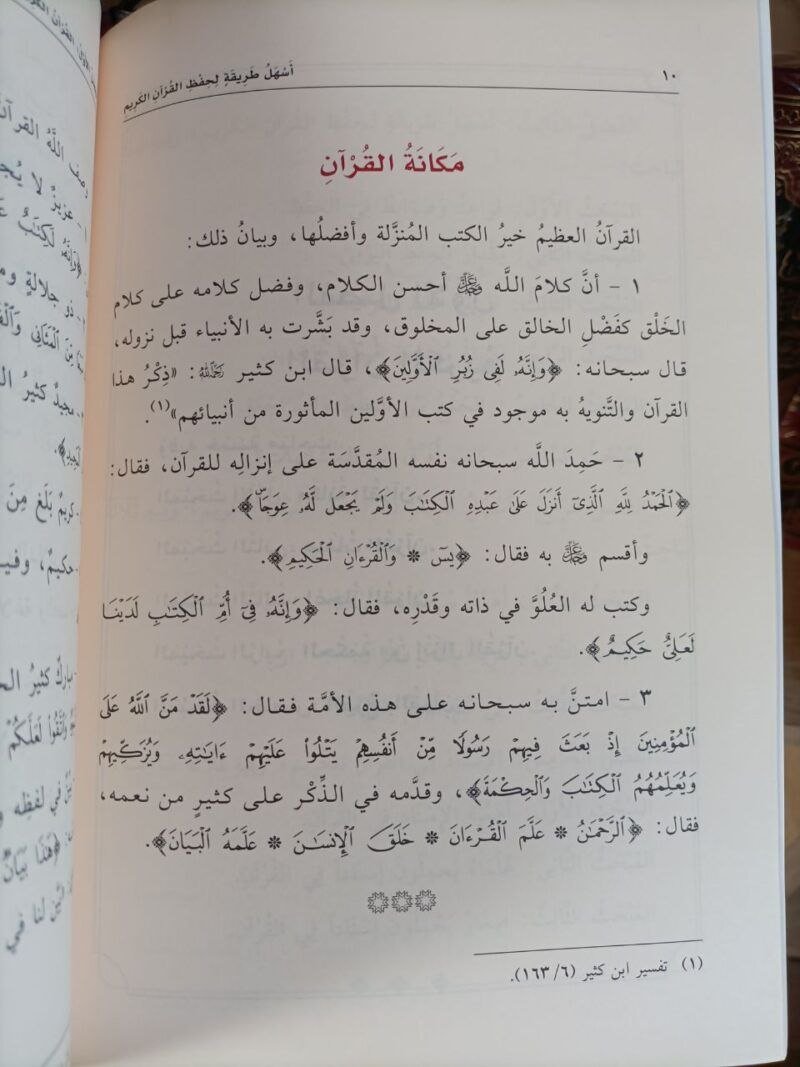 ١٠ أَسْهَلُ طَرِيقَةٍ لِحِفْظِ القُرْآنِ الكَرِيمِ
مَكَانَةُ القُرْآنِ
القرآنُ العظيمُ خيرُ الكتب المُنزَّلة وأفضلُها، وبيانُ ذلك:
١ - أنَّ كلامَ اللَّه ﷻ أحسن الكلام، وفضل كلامه على كلام
الخَلْق كفَضْلِ الخالق على المخلوق، وقد بَشَّرت به الأنبياء قبل نزوله،
قال سبحانه: ﴿وَإِنَّهُۥ لَفِى زُبُرِ ٱلْأَوَّلِينَ﴾، قال ابن كثير رحمه الله: «ذِكْرُ هذا
القرآن والتَّنويهُ به موجود في كتب الأوَّلين المأثورة من أنبيائهم»(١).
٢ - حَمِدَ اللَّه سبحانه نفسه المُقدَّسَة على إنزالِه للقرآن، فقال:
﴿ٱلْحَمْدُ لِلَّهِ ٱلَّذِىٓ أَنزَلَ عَلَىٰ عَبْدِهِ ٱلْكِتَٰبَ وَلَمْ يَجْعَل لَّهُۥ عِوَجَا﴾.
وأقسم ﷻ به فقال: ﴿يسٓ * وَٱلْقُرْءَانِ ٱلْحَكِيمِ﴾.
وكتب له العُلُوَّ في ذاته وقَدْرِه، فقال: ﴿وَإِنَّهُۥ فِىٓ أُمِّ ٱلْكِتَٰبِ لَدَيْنَا
لَعَلِىٌّ حَكِيمٌ﴾.
٣ - امتنَّ به سبحانه على هذه الأمَّة فقال: ﴿لَقَدْ مَنَّ ٱللَّهُ عَلَى
ٱلْمُؤْمِنِينَ إِذْ بَعَثَ فِيهِمْ رَسُولًا مِّنْ أَنفُسِهِمْ يَتْلُوا۟ عَلَيْهِمْ ءَايَٰتِهِۦ وَيُزَكِّيهِمْ
وَيُعَلِّمُهُمُ ٱلْكِتَٰبَ وَٱلْحِكْمَةَ﴾، وقدَّمه في الذِّكْر على كثيرٍ من نعمه،
فقال: ﴿ٱلرَّحْمَٰنُ * عَلَّمَ ٱلْقُرْءَانَ * خَلَقَ ٱلْإِنسَٰنَ * عَلَّمَهُ ٱلْبَيَانَ﴾.
(١) تفسير ابن كثير (٦/ ١٦٣).